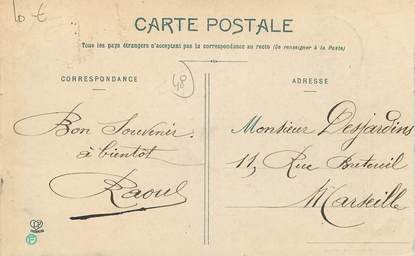 10 €
CARTE POSTALE
Tous les pays étrangers n'acceptent pas la correspondance au recto (Se renseigner à la Poste)
CORRESPONDANCE
48
ADRESSE
Bon Souvenir
à bientôt
Raoul
Monsieur Desjardins
11, Rue Breteuil
Marseille